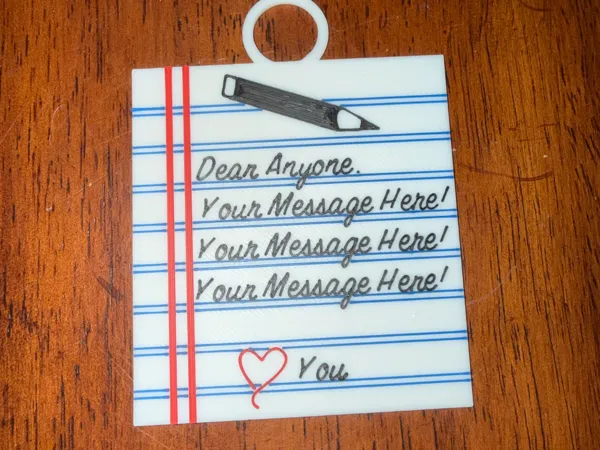 Dear Anyone.
Your Message Here!
Your Message Here!
Your Message Here!
You